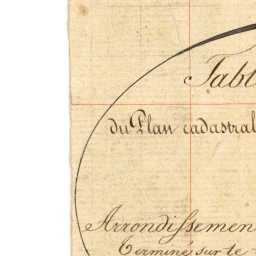 Tabl
du Plan cadastral
Arrondissemen
Terminé sur le